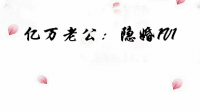 亿万老公：隐婚101